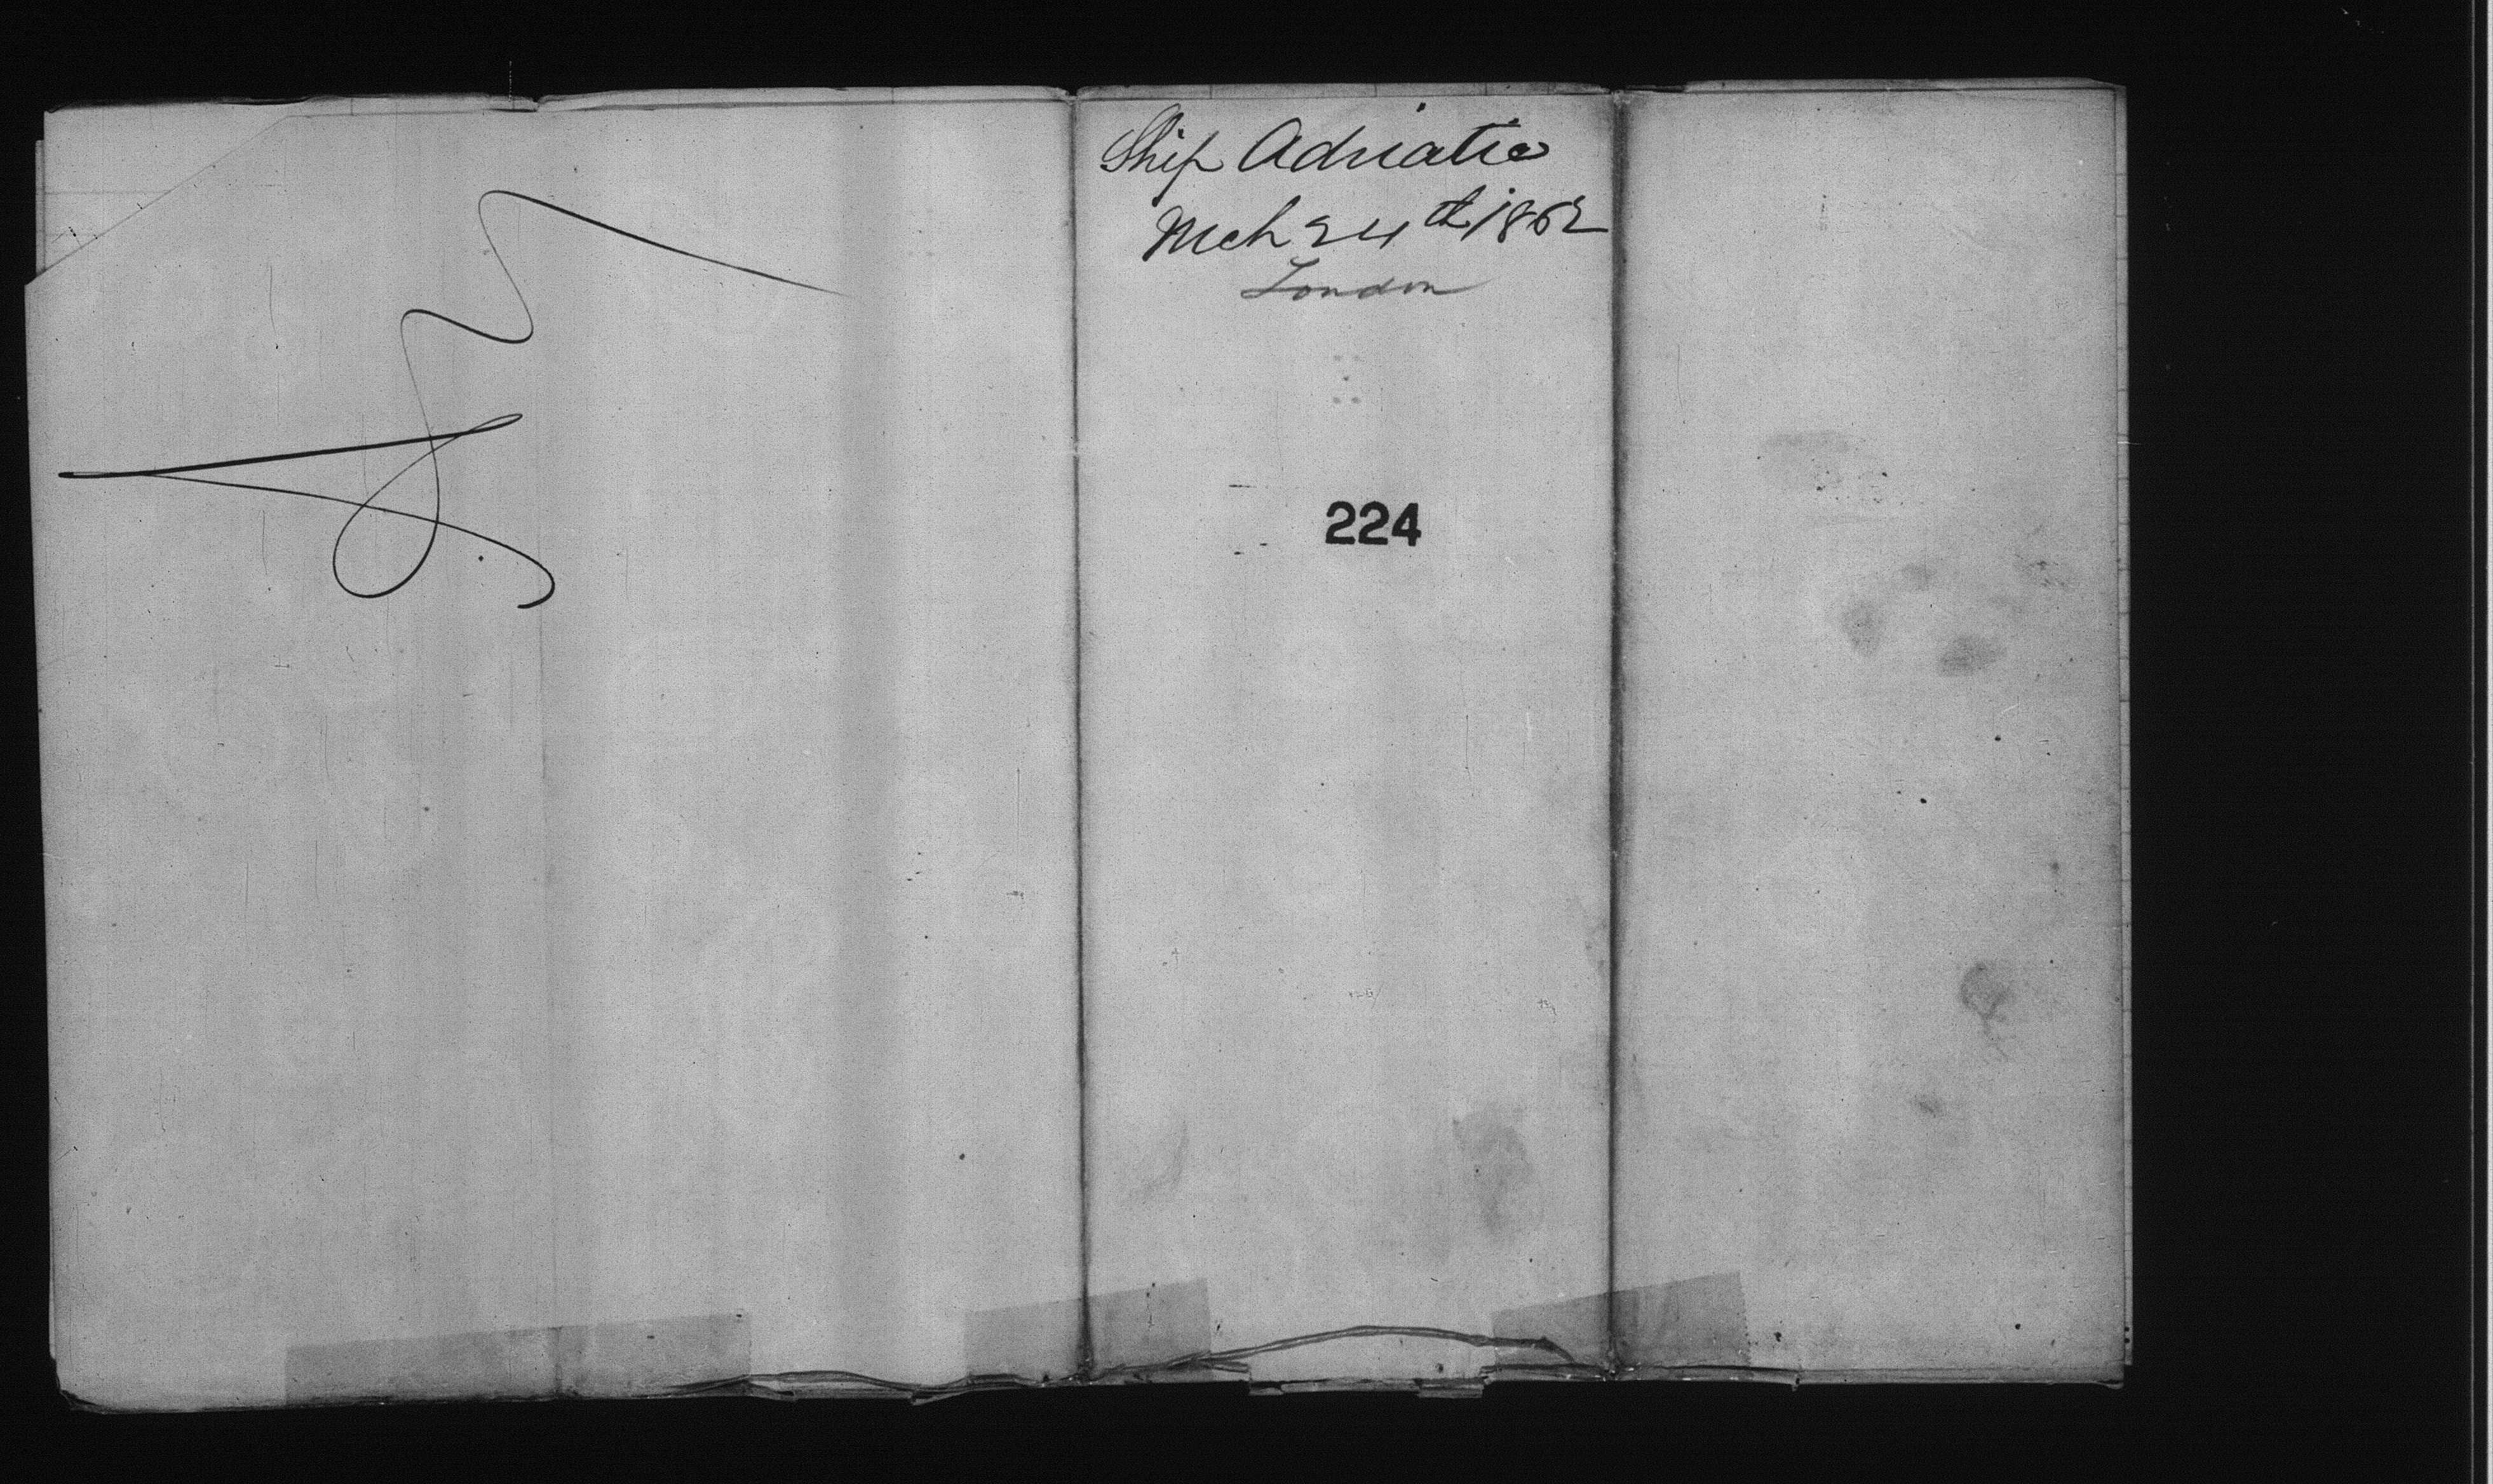 Ship Adriatic
Mch 24th 1862
London
224